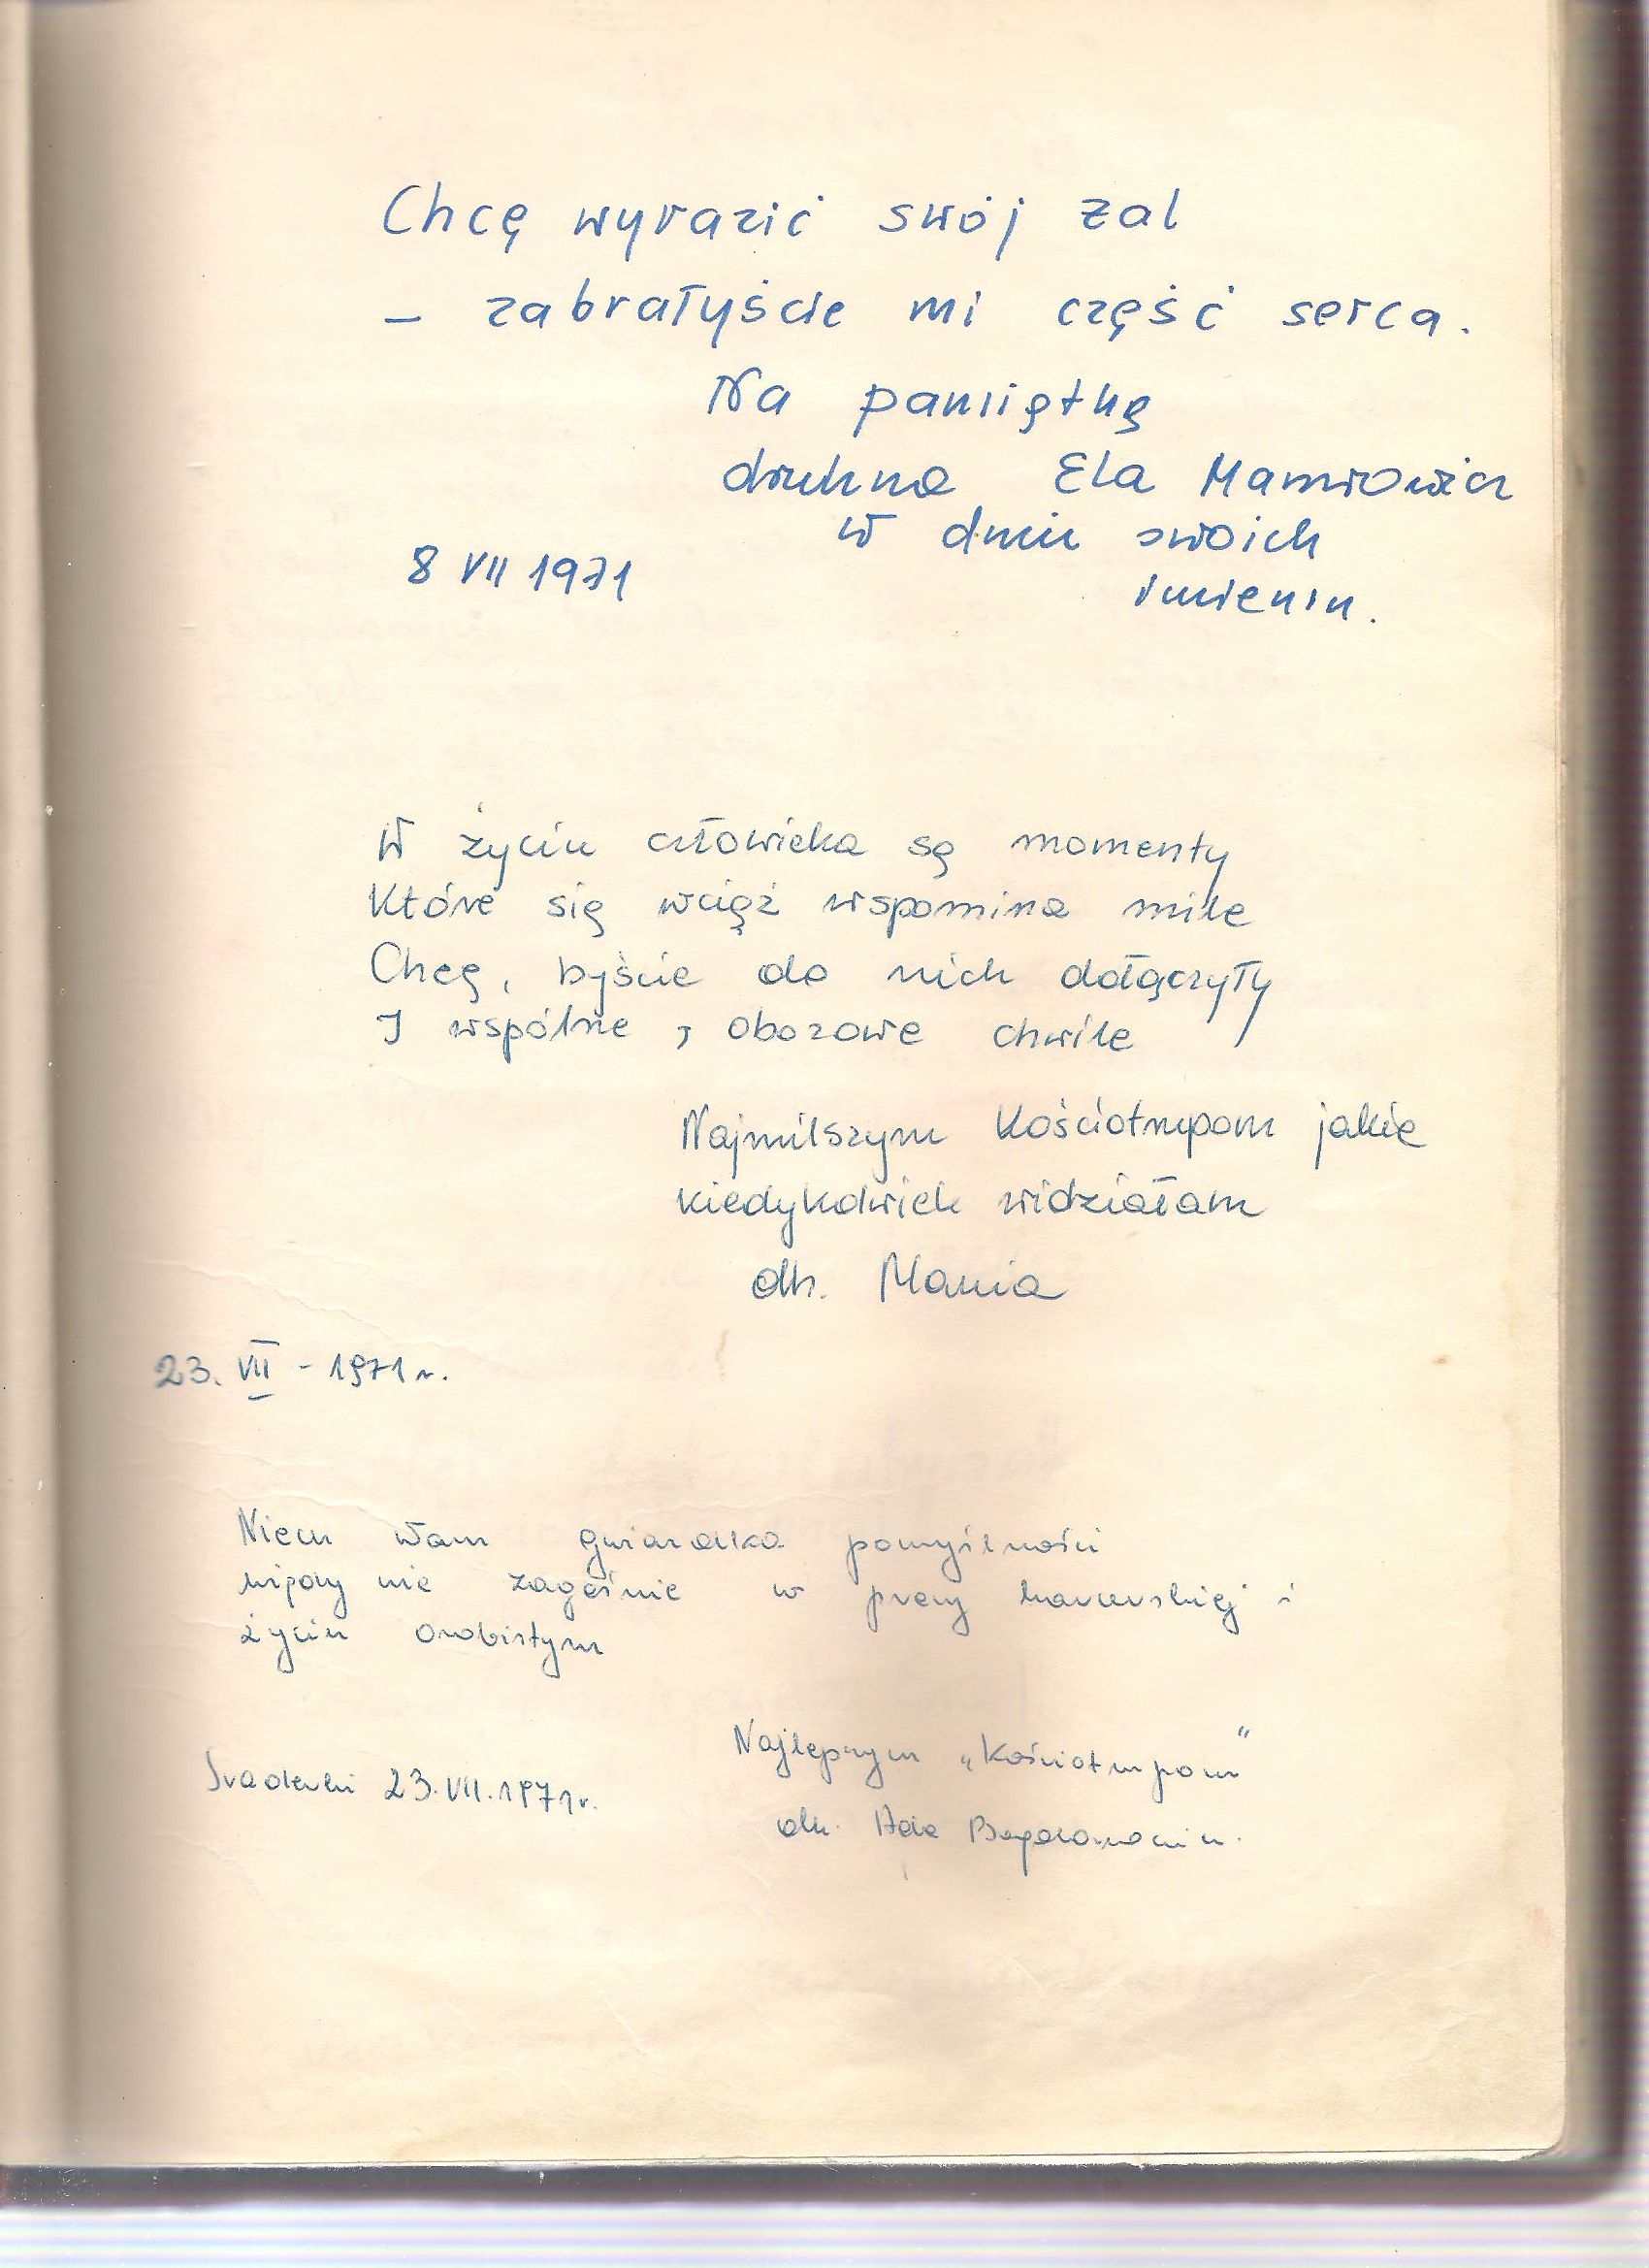 Chcę wyrazić swój żal
– zabrałyście mi część serca.
Na pamiątkę
druhna Ela
w dniu swoich
8 VII 1971
imienin.
W życiu człowieka są momenty
Które się wciąż wspomina mile
Chcę, byście do nich dołączyły
I wspólne, obozowe chwile
Najmilszym Kościotrupom jakie
kiedykolwiek widziałam
dh. Mania
23. VII - 1971 r.
Niech Wam gwiazdka pomyślności
nigdy nie zagaśnie w pracy harcerskiej i
życiu osobistym
Najlepszym „Kościotrupom”
23.VII.1971r.
dh. Ada